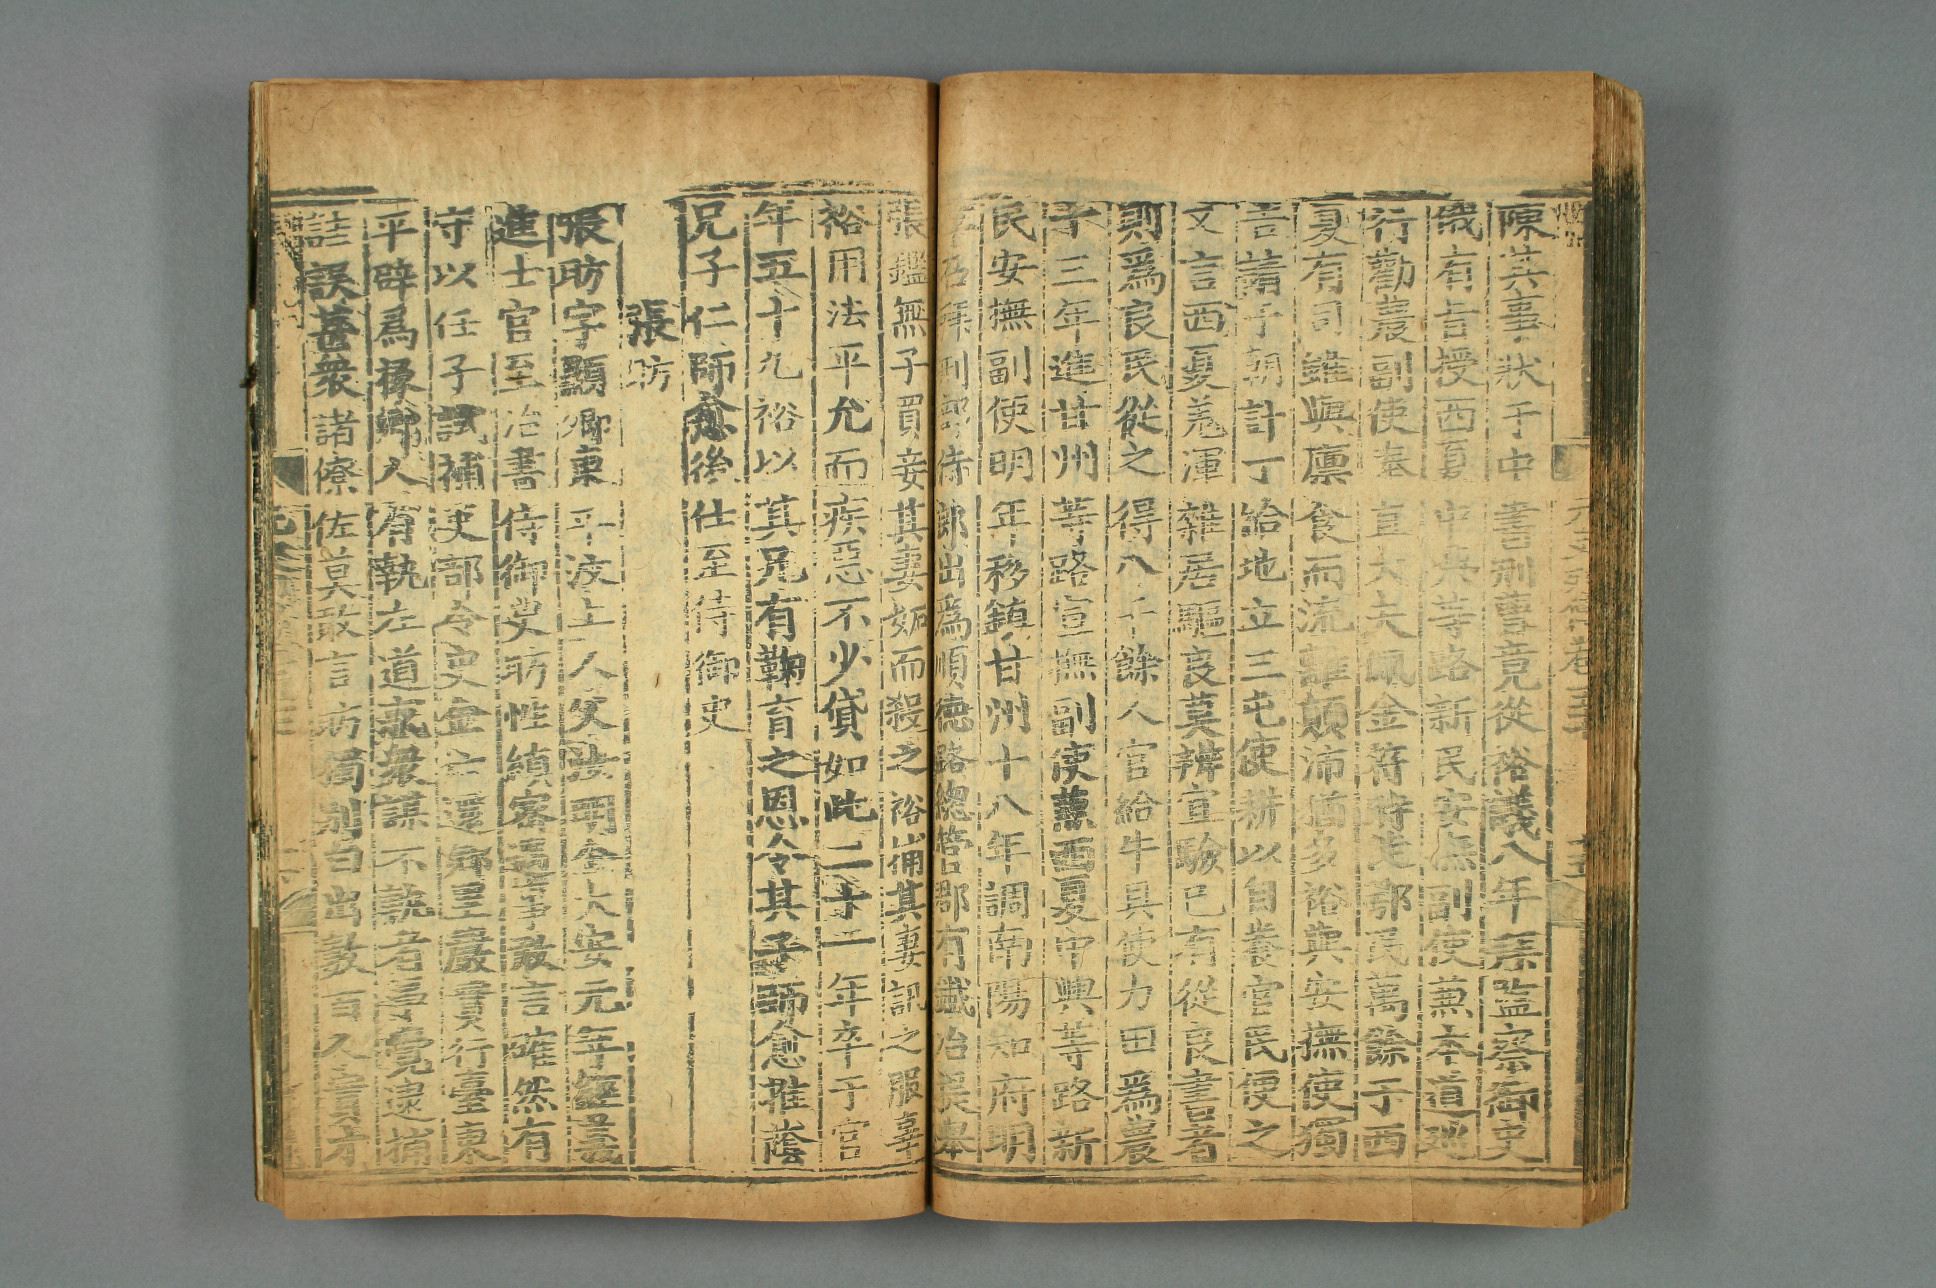 陳其事狀于中書刑曹竟從裕議八年拜監察御史
俄有旨授西夏中興等路新民安撫副使兼本道廵
行勸農副使奉直大夫佩金符時徙鄂民萬餘于西
夏有司雖與廪食而流離顛沛猶多裕與安撫使獨
吉請于朝計丁給地立三屯使耕以自養官民便之
又言西夏羌渾雜居驅良莫辨宣驗已有從良書者
則爲良民從之得八千餘人官給牛具使力田爲農
十三年進甘州等路宣撫副使兼西夏中興等路新
民安撫副使明年移鎮甘州十八年調南陽知府明
年召拜刑部侍郎出爲順德路總管郡有鐵冶提舉
張鑑無子買妾其妻妬而殺之裕捕其妻訊之服辜
裕用法平允而疾惡不少貸如此二十二年卒于官
年五十九裕以其兄有鞠育之恩令其子師愈推蔭
兄子仁師愈後仕至侍御史
張昉
張昉字顯卿東平汶上人父汝明金大安元年經義
進士官至治書侍御史昉性縝密遇事敢言確然有
守以任子試補吏部令史金亡還鄉里嚴實行臺東
平辟爲掾鄉人有執左道惑衆謀不軌者事覺逮捕
詿誤甚衆諸僚佐莫敢言昉獨别白出數百人實才